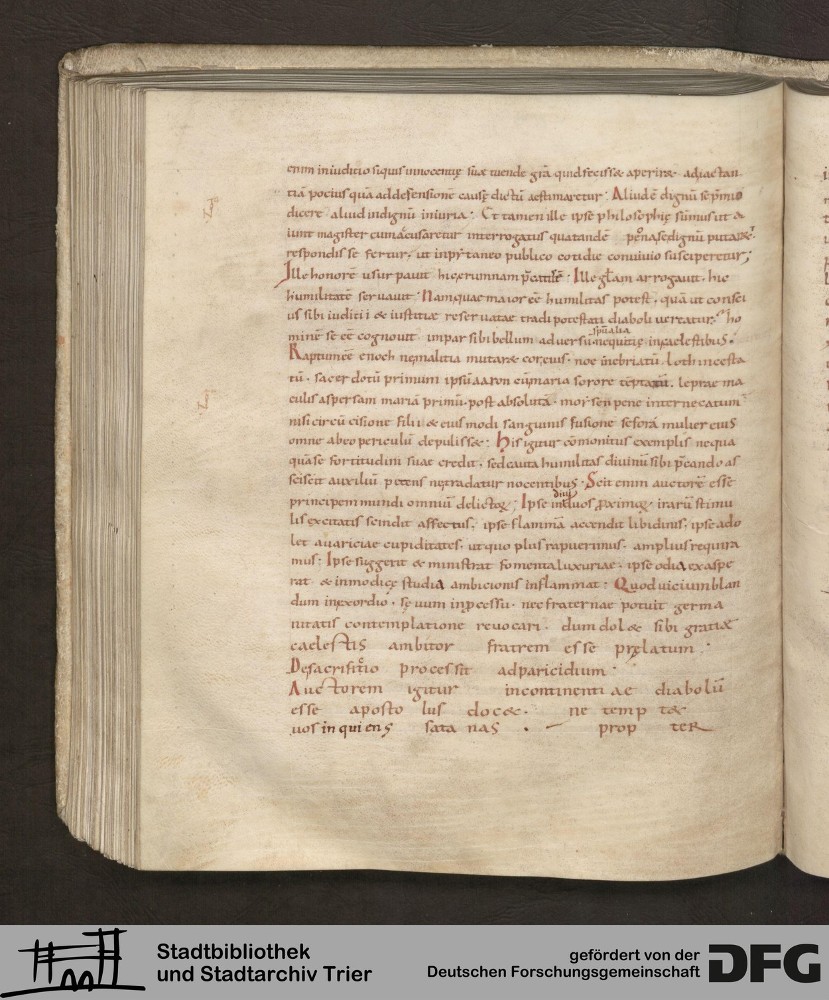 enim iniuditio siquis innocentię suae tuende grā quid fecisse aperiret adiactan
tiā pociusquā addefensionē causę dictū aestimaretur. Aliud ē dignū se p̄mio
dicere aliud indignū iniuria. Et tamen ille ipse philosophię sūmus ut &
iunt magister cum accusaretur interrogatus quatandē pęna se dignū putar&.
respondisse fertur, ut inprytaneo publico cotidie convivio susciperetur;
Ille honorē usurpavit hic erumnam Ille glām arrogavit, hic
humilitatē servavit. Nam quae maior eē humilitas potest, quā ut consci
us sibi iuditii & iustitiae reservatae tradi potestati diaboli vereatur. ho
minē se eē cognovit imparsibi bellum adversū nequitię incaelestibus.
spiritalia
Raptum eē enoch nemalitia mutar& cor eius. noe inebriatū. Loth incesta
tū. sacerdotū primum ipsū aaron cū maria sorore tēptatū. leprae ma
culis aspersam mariā primū. post absolutā. moysen pene internecatum
nisi circūcisione filii & eiusmodi sanguinis fusione sefora mulier eius
omne abeo periculū depulisse. His igitur cōmonitus exemplis nequa
quā se fortitudini suae credit, sed cauta humilitas divinū sibi p̄cando as
sciscit auxiliū petens ne tradatur nocentibus. Scit enim auctorē esse
principem mundi omniū delictoꝝ; Ipse induos proximoꝝ irarū stimu
divisos
lis excitatis scindit affectus, ipse flammā accendit libidinis, ipse ado
let avariciae cupiditates. ut quo plus rapuerimus. amplius requira
mus. Ipse suggerit & ministrat fomenta luxuriae. ipse odia exaspe
rat & inmodicę studia ambicionis inflammat. Quod vicium blan
dum inexordio. sęvum inprocessu. nec fraternae potuit germa
nitatis contemplatione revocari. dum dol& sibi gratiae
caelestis ambitor fratrem esse prelatum.
Desacrificio processit adparicidium.
Auctorem igitur incontinentiae diabolū
esse apostolus doc&. ne temptet
vos inquiens satanas. propter
Stadtbibliothek
und Stadtarchiv Trier
gefördert von der
Deutschen Forschungsgemeinschaft
DFG